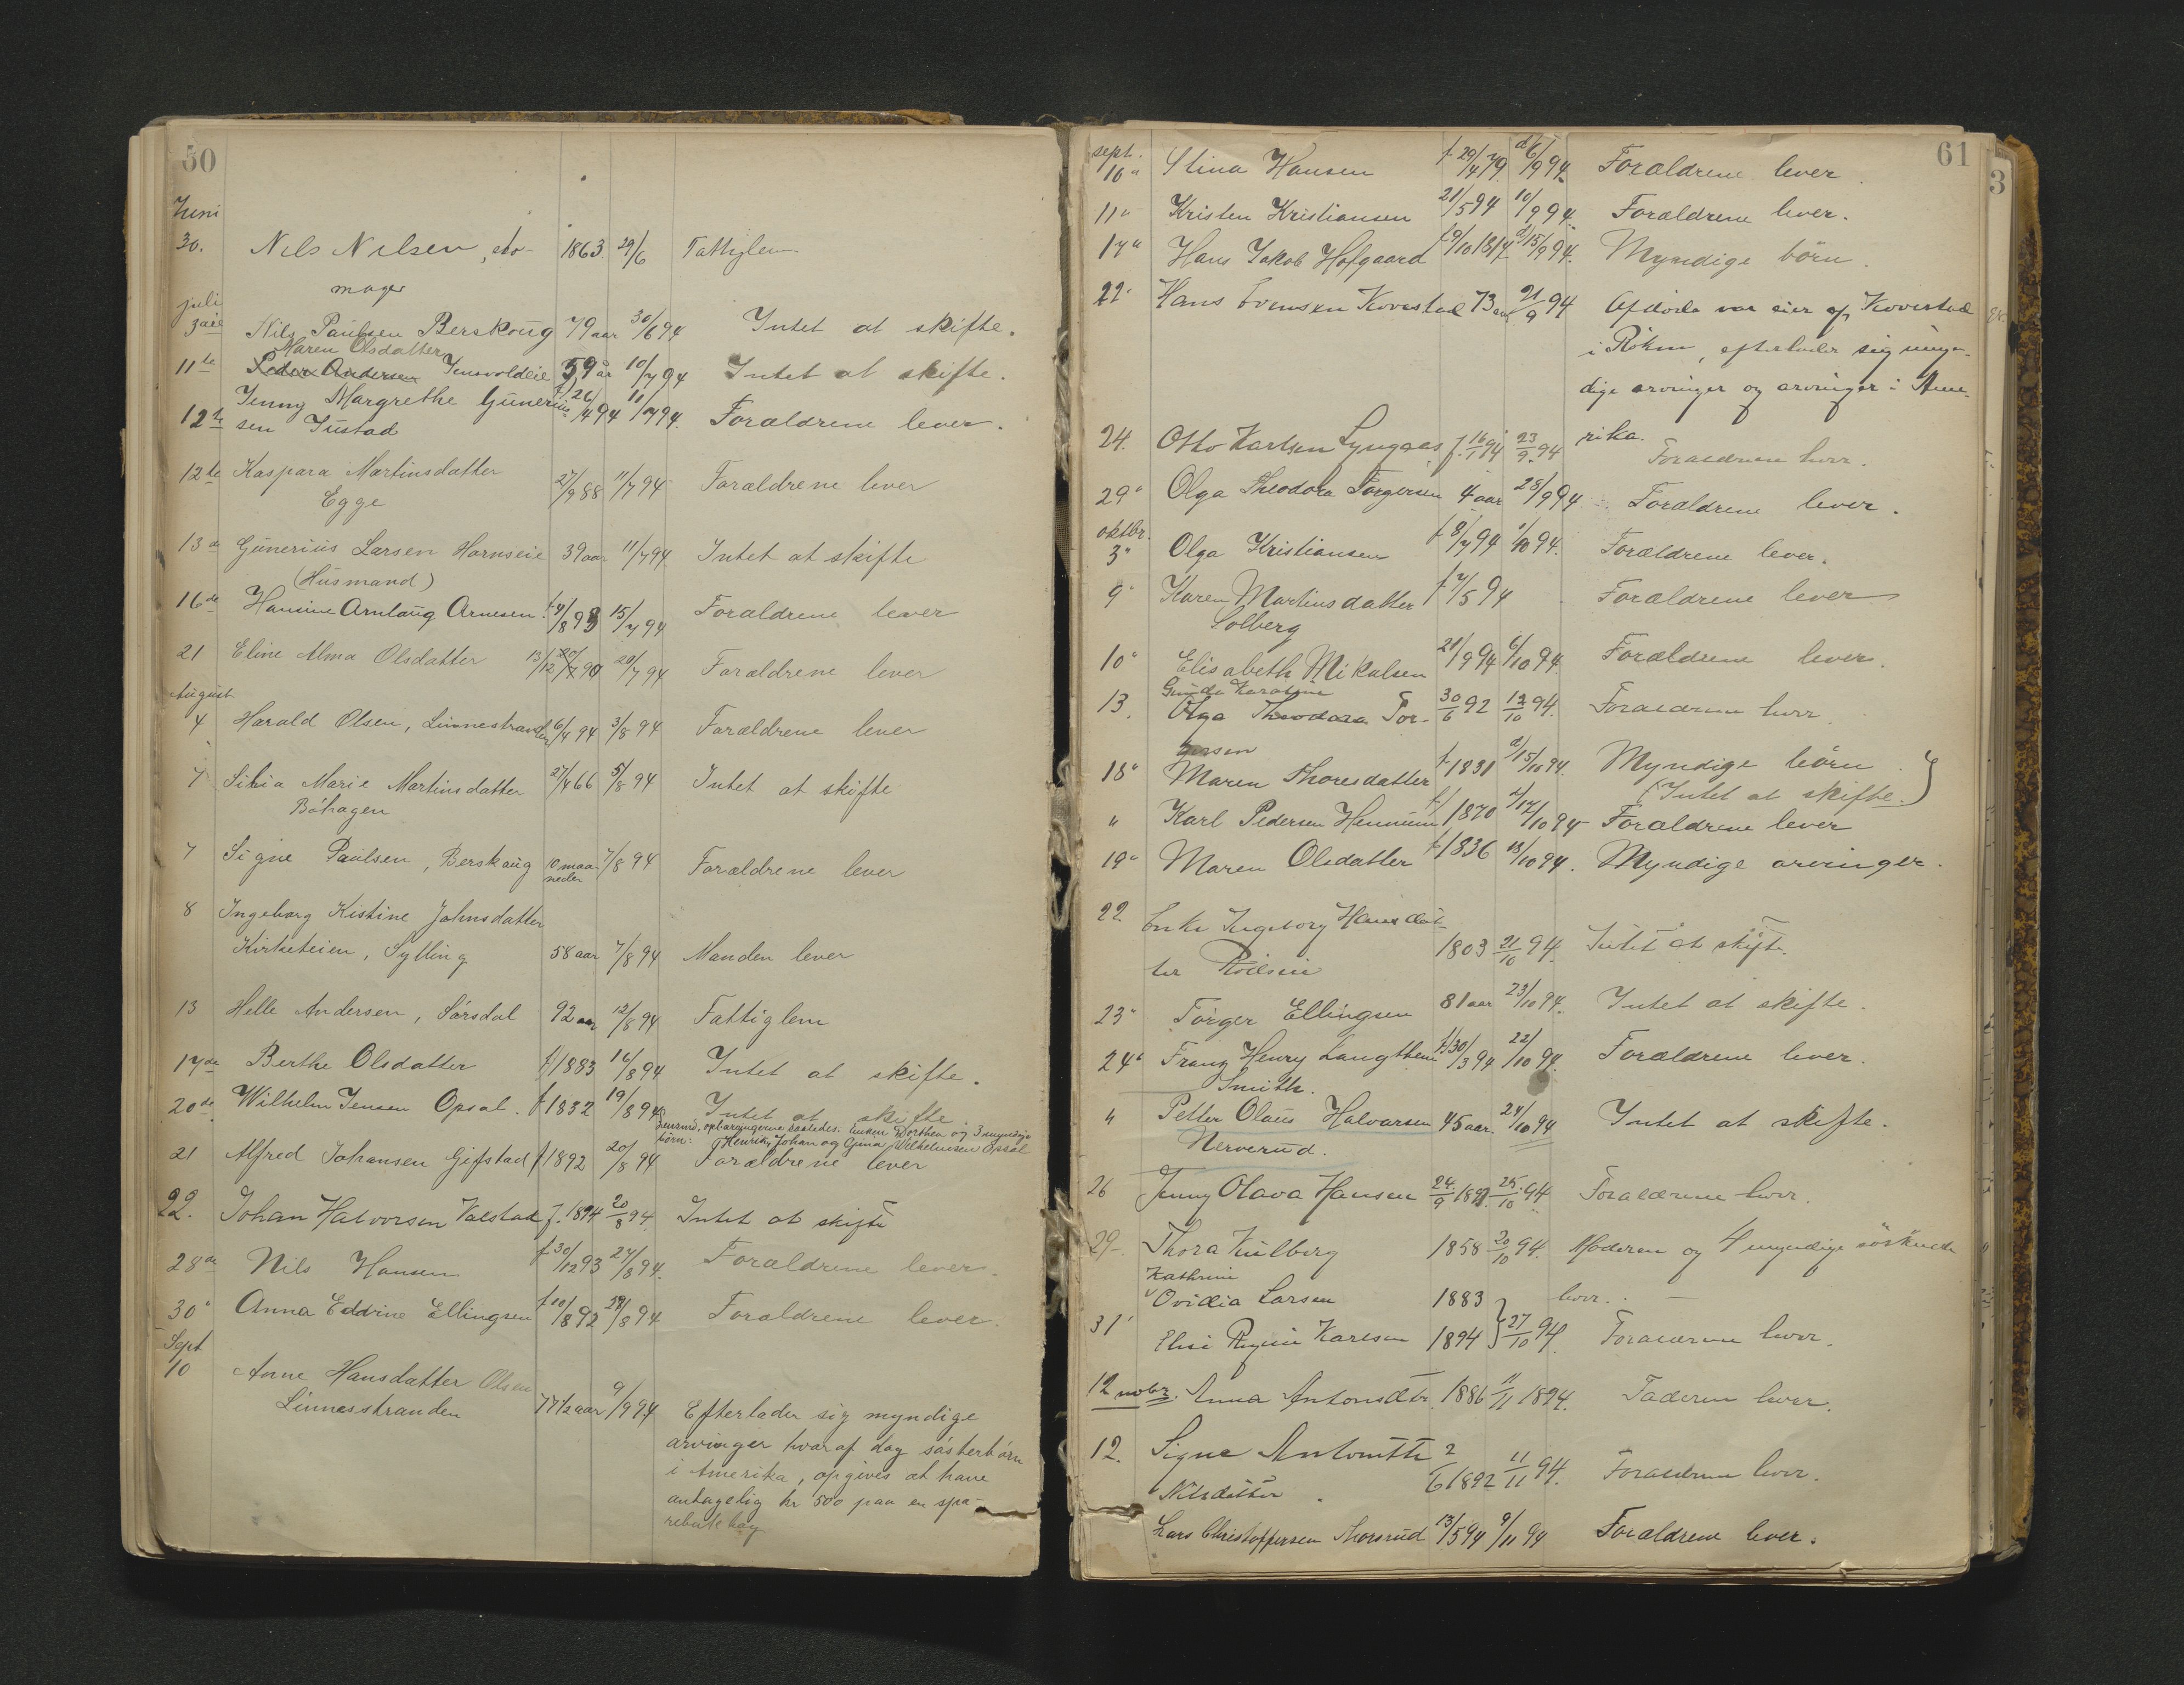 50
Juni
30. Nils Nilsen, sko- 1863 29/6 Fattiglem
mager
juli
3die Nils Paulsen Berskoug 79 aar 30/6 94 Intet at skifte.
Maren Olsdatter
11te Peder Andersen Jensvoldeie 59 år 10/7 94 Intet at skifte.
Jenny Margrethe Guneriu-
12te sen Justad 26/4 94 11/7 94. Forældrene lever.
12te Kaspara Martinsdatter 27/9 88 11/7 94 Forældrene lever
Egge
13de Gunerius Larsen Hornseie 39 aar 11/7 94 Intet at skifte
(Husmand)
16de Hansine Arnlaug Arnesen f 4/8 93 15/7 94 Forældrene lever
21 Eline Alma Olsdatter 13/12 90 20/7 94 Forældrene lever
August
4 Harald Olsen, Linnestranden 6/4 94 3/8 94 Forældrene lever
7 Silia Marie Martinsdatter 27/4 66 5/8 94 Intet at skifte
Böhagen
7 Signe Paulsen, Berskaug 10 maa- 7/8 94 Forældrene lever
neder
8 Ingeborg Kistine Johnsdatter
Kirketeien, Sylling 58 aar 7/8 94 Manden lever
13 Helle Andersen, Sørsdal 92 aar 12/8 94 Fattiglem
17de Berthe Olsdatter f 1883 16/8 94 Intet at skifte.
20de Wilhelm Jensen Opsal. f 1832 19/8 94 Intet at skifte
Enken Dorthea og 3 myndige
börn: Henrik, Johan og Gina Wilhelmsen Opsal
21 Alfred Johansen Gifstad f 1892 20/8 94 Forældrene lever
22. Johan Halvorsen Valstad f. 1894 20/8 94. Intet at skifte
28de Nils Hansen f 30/12 93 27/8 94. Forældrene lever.
30" Anna Eddine Ellingsen f 10/8 92 29/8 94 Forældrene lever.
Sept
10 Anne Hansdatter Olsen
Linnesstranden 77 1/2 aar 9/9 94 Efterlader sig myndige
arvinger hvoraf dog søsterbørn
i Amerika, opgives at have
antagelig kr 500 paa en spa-
rebank bog
61
3
sept.
10" Stina Hansen f 29/4 79. d 6/9 94. Forældrene lever.
11" Kristen Kristiansen 21/5 94 10/9 94. Forældrene lever.
17" Hans Jakob Hofgaard f 9/10 1817 d 15/9 94. Myndige börn.
22" Hans Evensen Kovestad 73 aar 21/9 94 Afdöde var eier af Kovestad
i Röken, efterlader sig myn-
dige arvinger og arvinger i Ame-
rika.
24. Otto Karlsen Lyngaas f. 16/1 94 23/9. 94 Forældrene lever.
29" Olga Theodora Torgersen 4 aar 28/9 94 Forældrene lever.
oktbr.
3" Olga Kristiansen f 8/7 94 1/10 94. Forældrene lever.
9" Karen Martinsdatter f 4/5 94 Forældrene lever
Solberg
10" Elisabeth Mikalsen 21/9 94 6/10 94. Forældrene lever.
Gunda Karoline
13. Olga Theodora Tor- 30/6 92 12/10 94. Forældrene lever.
gersen
18" Maren Thoresdatter f 1831 d/15/10 94. Myndige börn.
(Intet at skifte.)
" Karl Pedersen Hennum f/1870 d/17/10 94 Forældrene lever
19" Maren Olsdatter f 1836 13/10 94. Myndige arvinger.
22 Enke Ingeborg Hansdat-
ter 1803 21/10 94. Intet at skifte.
23" Torger Ellingsen 81 aar 23/10 94. Intet at skifte.
24" Franz Henry Langthem f/30/3 94 22/10 94. Forældrene lever.
Smith.
" Petter Olaus Halvorsen 45 aar. 24/10 94 Intet at skifte.
Nerverud.
26 Jenny Olava Hansen 24/9 1893. 25/10. 94 Forældrene lever.
29- Thora Kulberg 1858 20/10 94. Moderen og 4 myndige söskende
lever.
Kathrine
Ovidia Larsen 1883
31' Elise Regine Karlsen 1894 } 27/10 94. Forældrene lever.
12 novbr. Anna Antonsdtr. 1886 11/11 1894. Faderen lever.
12. Signe Antonette 2
Nilsdatter. 6 1892 11/11 94. Forældrene lever.
Lars Christoffersen Morsrud 13/5 94 9/11 94 Forældrene lever.